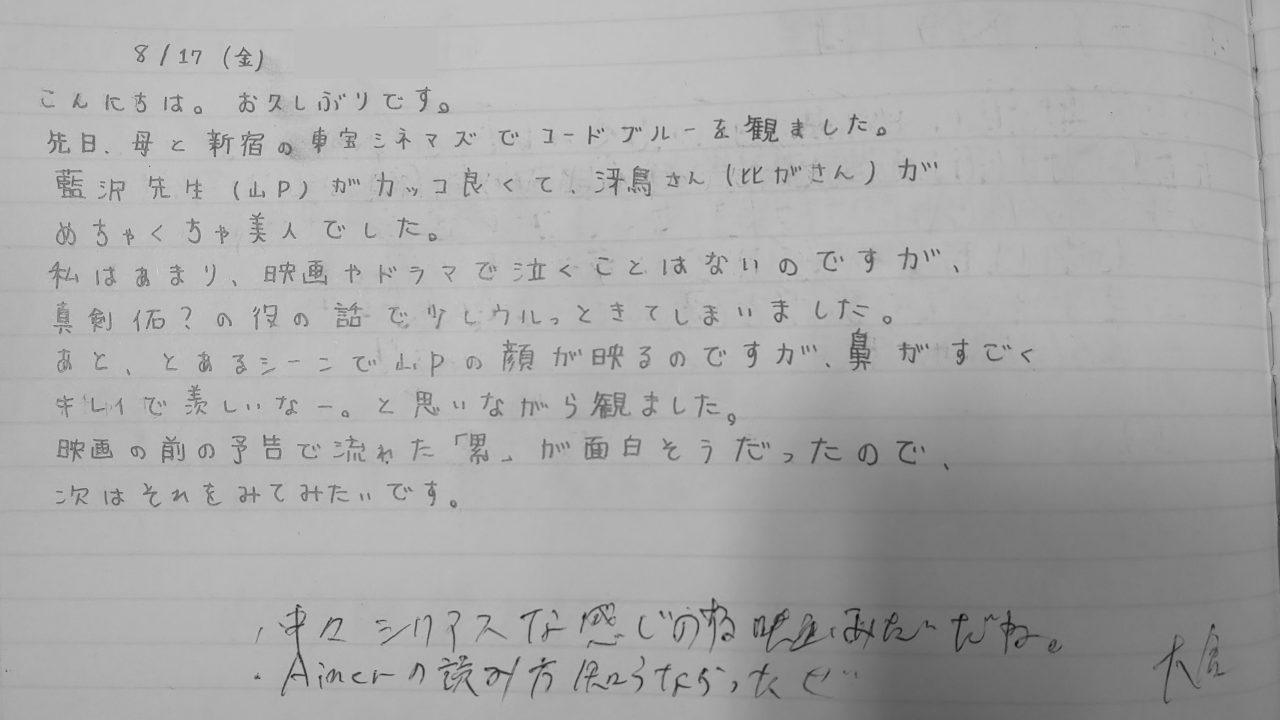 8/17 (金)
こんにちは。お久しぶりです。
先日、母と新宿の東宝シネマズでコードブルーを観ました。
藍沢先生(山P)がカッコ良くて、冴島さん(比がさん)が
めちゃくちゃ美人でした。
私はあまり、映画やドラマで泣くことはないのですが、
真剣佑?の役の話で少しウルっときてしまいました。
あと、とあるシーンで山Pの顔が映るのですが、鼻がすごく
キレイで羨しいなー。と思いながら観ました。
映画の前の予告で流れた「累」が面白そうだったので、
次はそれをみてみたいです。
・中々シリアスな感じの映画みたいだね。
・Aimerの読み方知らなかったぜ…